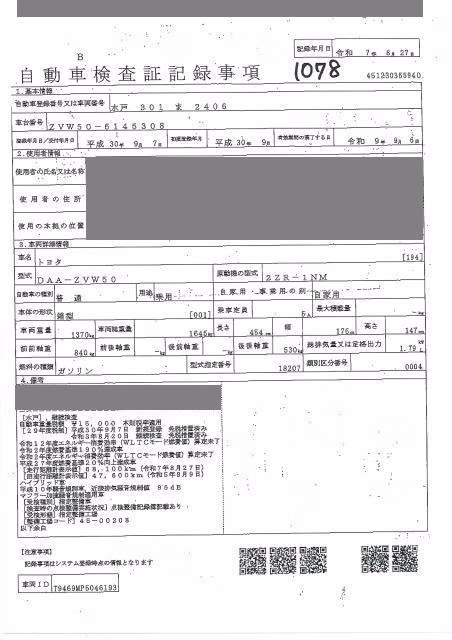 記録年月日 令和 7年 8月27日
B
自動車検査証記録事項
1078
451230365940
1.基本情報
自動車登録番号又は車両番号 水戸 301 ま 2406
車台番号 ZVW50-6145308
登録年月日/交付年月日 平成 30年 9月 7日 初度登録年月 平成 30年 9月 有効期間の満了する日 令和 9年 9月 6日
2.使用者情報
使用者の氏名又は名称
使用者の住所
使用の本拠の位置
3.車両詳細情報
車名 トヨタ [194]
型式 DAA-ZVW50 原動機の型式 2ZR-1NM
自動車の種別 普通 用途 乗用 自家用・事業用の別 自家用
車体の形状 箱型 [001] 乗車定員 5人 最大積載量 -kg
車両重量 1370kg 車両総重量 1645kg 長さ 454cm 幅 176cm 高さ 147cm
前前軸重 840kg 前後軸重 -kg 後前軸重 -kg 後後軸重 530kg 総排気量又は定格出力 1.79L
燃料の種類 ガソリン 型式指定番号 18207 類別区分番号 0004
4.備考
[水戸],継続検査
自動車重量税額 ¥15,000 本則税率適用
[29年度税制]平成30年9月7日 新規登録 免税措置済み
令和3年8月20日 継続検査 免税措置済み
令和12年度エネルギー消費効率(WLTCモード燃費値)算定未了
令和2年度燃費基準190%達成車
令和2年度エネルギー消費効率(WLTCモード燃費値)算定未了
平成27年度燃費基準20%向上達成車
[走行距離計表示値]68,100km(令和7年8月27日)
[旧走行距離計表示値]47,600km(令和5年8月9日)
ハイブリッド車
平成10年騒音規制車,近接排気騒音規制値 96dB
マフラー加速騒音規制適用車
[受検種別]指定整備車
[検査時の点検整備実施状況]点検整備記録簿記載あり
[受検形態]指定整備工場
[整備工場コード]45-00208
以下余白
[注意事項]
記録事項はシステム登録時点の情報となります
車両ID T9469MP5046193